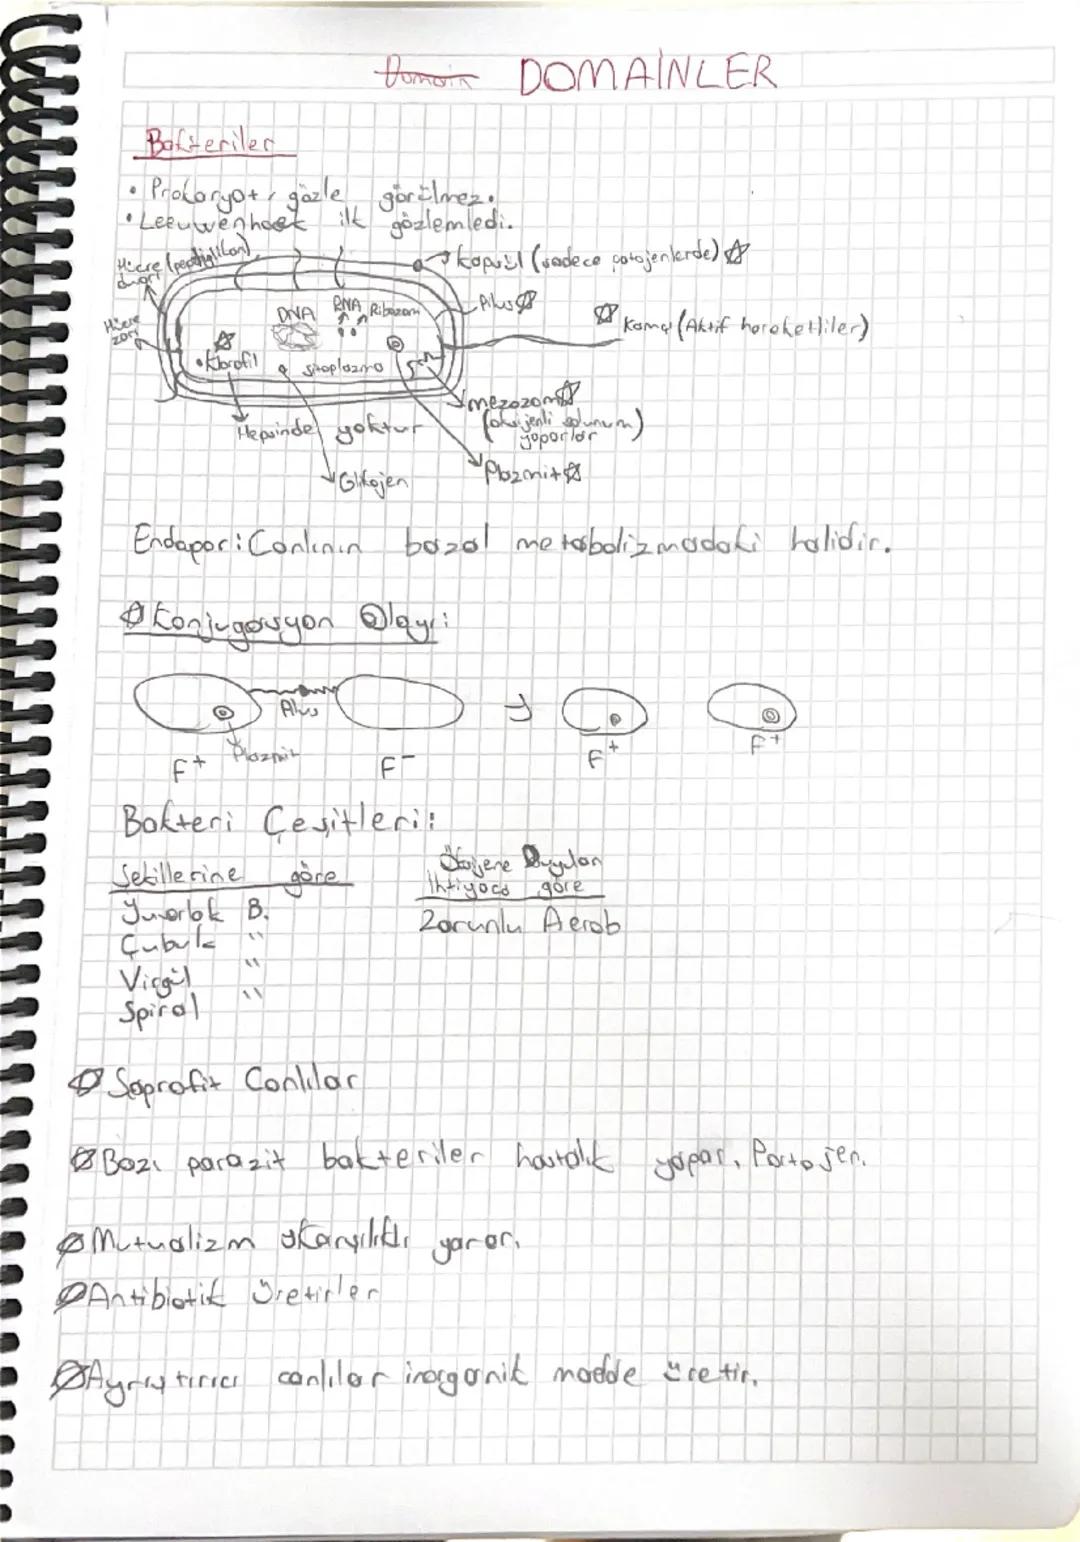 Domain DOMAİNLER
Bakteriler
• Prokaryot, gözle görülmez.
• Leeuwenhoek ilk gözlemledi.
Hücre (peptiglikan)
duvarı
Kapsül (sadece patojenlerde)
Hücre
zarı
DNA RNA Ribozom
Pilus
Kamçı (Aktif hareketliler)
• Klorofil sitoplazma
mezozom
(oksijenli solunum)
yaparlar
Hepsinde yoktur
Glikojen
Plazmit
Endospor: Canlının bazal metabolizmadaki halidir.
Konjugasyon Olayı:
Pilus
Plazmit
F+ F- F+ F+
Bakteri Çeşitleri:
Şekillerine göre
Oksijene Duyulan
ihtiyaca göre
Yuvarlak B.
Zorunlu Aerob
Çubuk "
Virgül "
Spiral "
Saprofit Canlılar
Bazı parazit bakteriler hastalık yapar. Patojen.
Mutualizm Karşılıklı yarar.
Antibiotik üretirler
Ayrıştırıcı canlılar inorganik madde üretir.